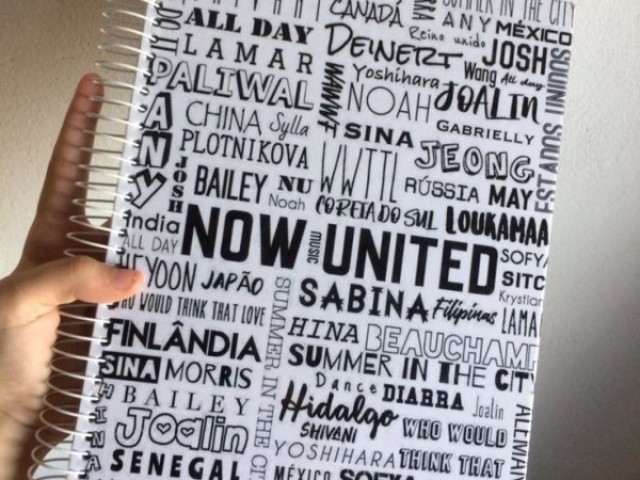 CANADÁ
SUMMER IN THE CITY
ANY MÉXICO
ALL DAY
Reino unido
DEINERT
JOSH
LAMAR
Yoshihara
Wang All day
PALIWAL
WWWF
NOAH
JOALIN
CHINA Sylla
SINA
GABRIELLY
ANY
PLOTNIKOVA
WWTTL
JEONG
JOSH
BAILEY NU
Noah
RÚSSIA MAY
COREIA DO SUL
LOUKAMAA
India
ALL DAY
NOW UNITED
MUSIC
SOFYA
HEYOON JAPÃO
SITC
Krystian
SABINA Filipinas
LAMA
WHO WOULD THINK THAT LOVE
HINA BEAUCHAMP
FINLÂNDIA
SUMMER IN THE CITY
SINA MORRIS
Dance DIARRA Joalin
SUMMER IN THE CI
HINA
BAILEY
Hidalgo
SHIVANI
WHO WOULD
ALEMAN
Joalin
YOSHIHARA THINK THAT
SENEGAL
MÉXICO SOFYA